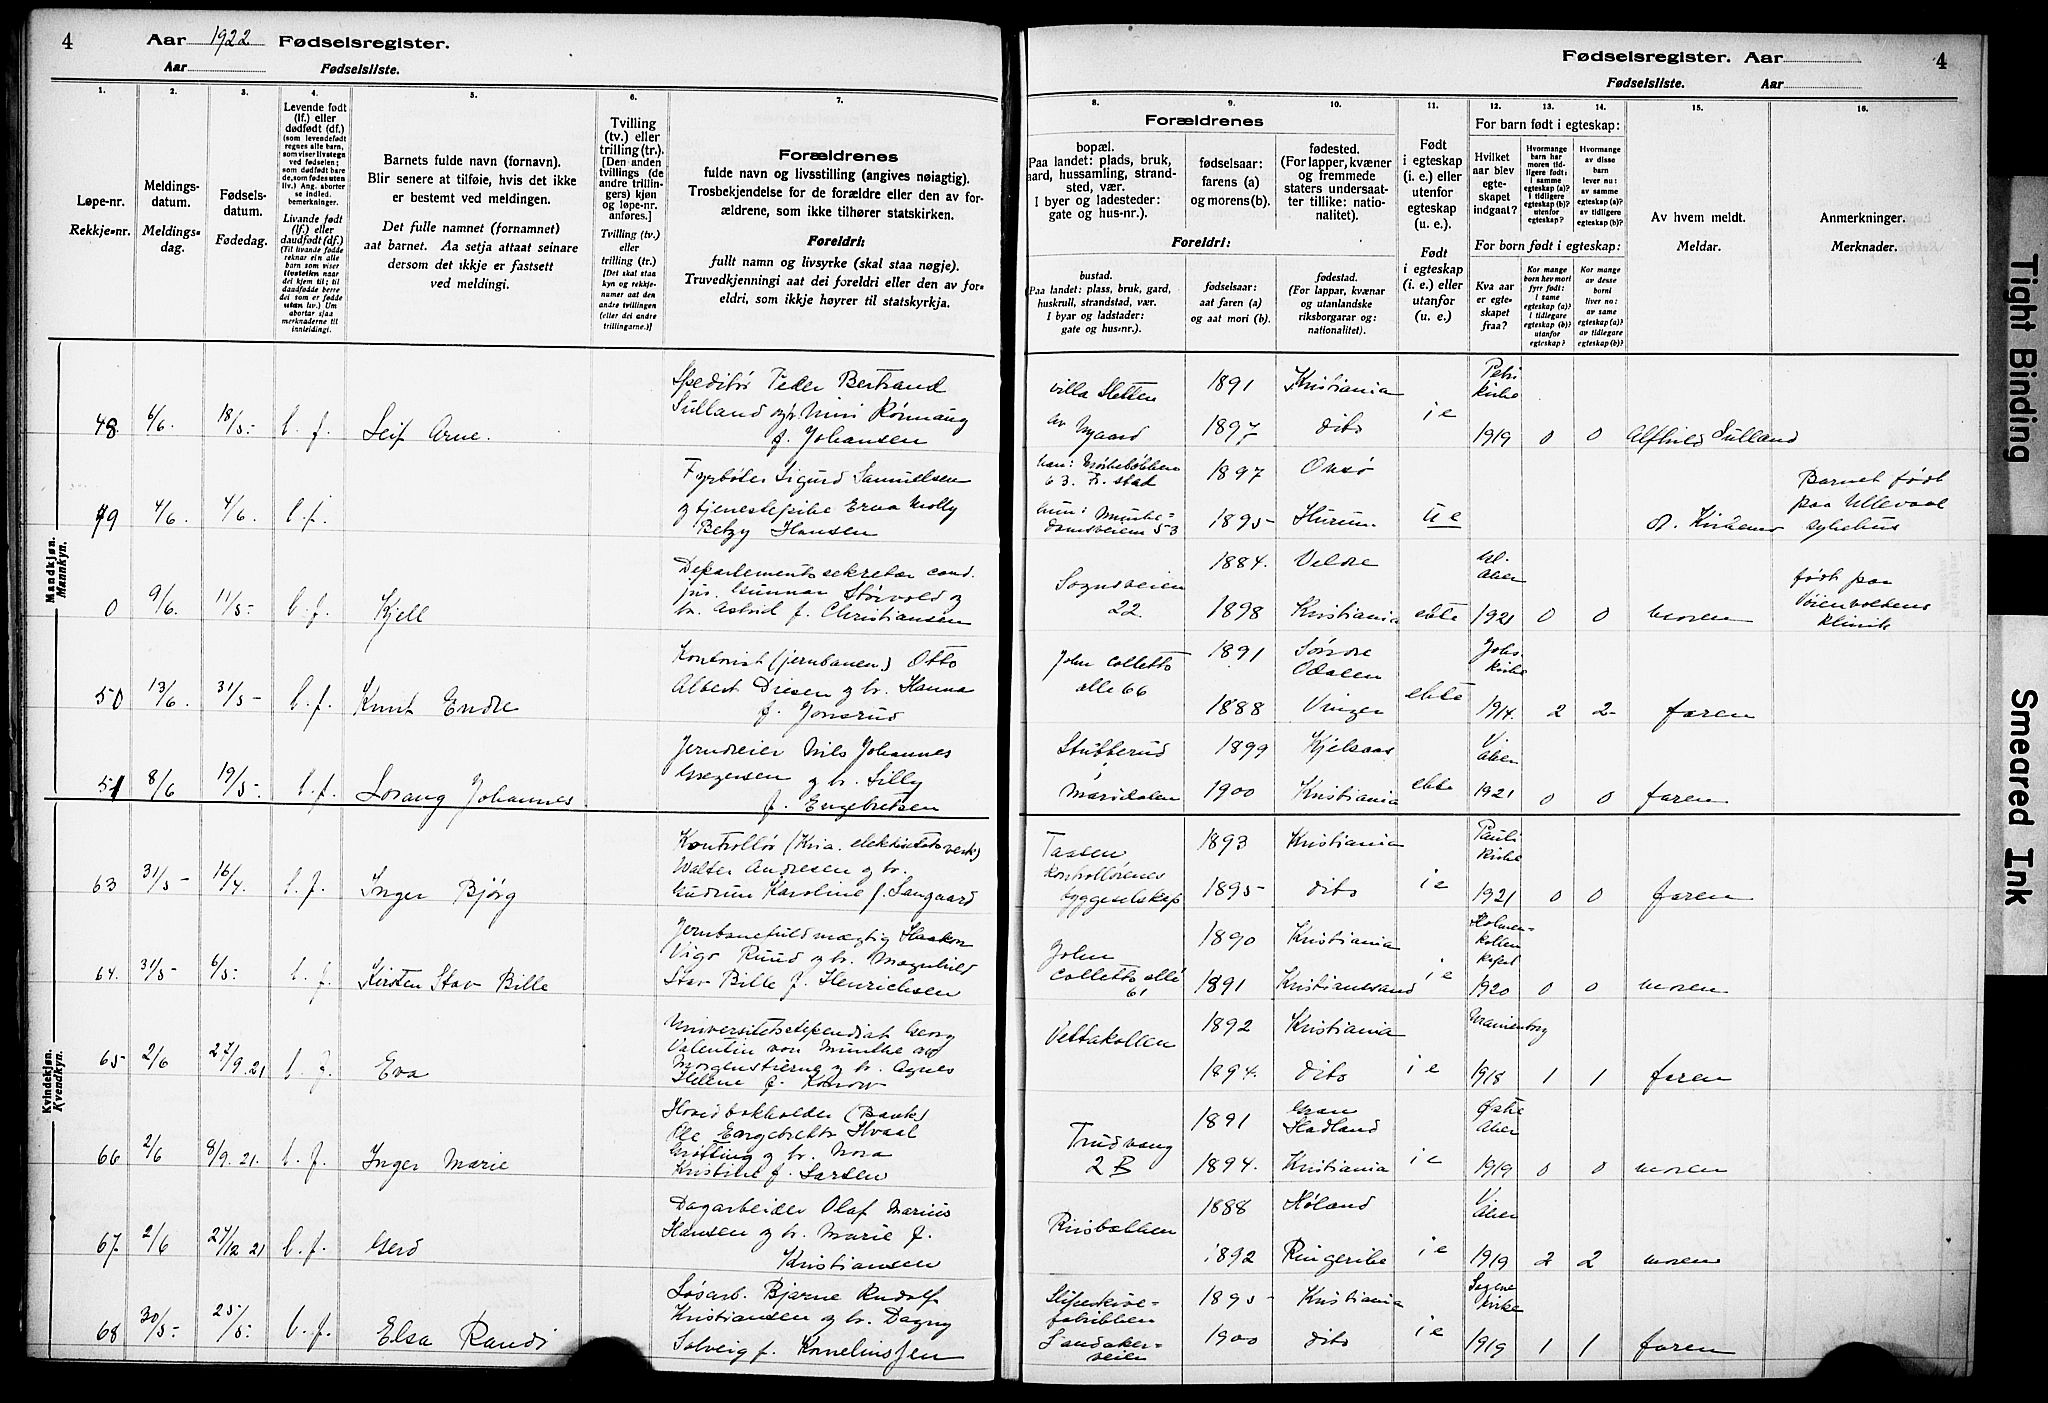 4 Aar 1922 Fødselsregister.
Aar Fødselsliste.
Fødselsregister. Aar 4
Fødselsliste. Aar
1. 2. 3. 4. 5. 6. 7. 8. 9. 10. 11. 12. 13. 14. 15. 16.
Løpe-nr.
Rekkje-nr.
Meldings-
datum.
Meldings-
dag.
Fødsels-
datum.
Fødedag.
Levende født
(lf.) eller
dødfødt (df.)
(som levendefødt
regnes alle barn,
som viser livstegn
ved fødselen;
som dødfødt bare
de, som fødes uten
liv.) Ang. aborter
se indled.
bemerkninger.
Livande født
(lf.) eller
daudfødt (df.)
(Til livande fødde
reknar ein alle
barn som viser
livsteikn naar
dei kjem til; til
daudfødde berre
dei som er fødde
utan liv.) Um
abortar sjaa
merknaderne til
innleidingi.
Barnets fulde navn (fornavn).
Blir senere at tilføie, hvis det ikke
er bestemt ved meldingen.
Det fulle namnet (fornamnet)
aat barnet. Aa setja attaat seinare
dersom det ikkje er fastsett
ved meldingi.
Tvilling
(tv.) eller
trilling (tr.).
[Den anden
tvillings (de
andre trillin-
gers) kjøn
og løpe-nr.
anføres.]
Tvilling (tv.)
eller
trilling (tr.)
[Det skal staa
kyn og rekkje-
numer aat den
andre tvillingen
(eller dei andre
trillingarne.)]
Forældrenes
fulde navn og livsstilling (angives nøiagtig).
Trosbekjendelse for de forældre eller den av for-
ældrene, som ikke tilhører statskirken.
Foreldri:
fullt namn og livsyrke (skal staa nøgje).
Truvedkjenningi aat dei foreldri eller den av for-
eldri, som ikkje høyrer til statskyrkja.
Forældrenes
bopæl.
Paa landet: plads, bruk,
gard, hussamling, strand-
sted, vær.
I byer og ladesteder:
gate og hus-nr.).
fødselsaar:
farens (a)
og morens (b).
fødested.
(For lapper, kvæner
og fremmede
staters undersaat-
ter tillike: natio-
nalitet).
Foreldri:
bustad.
Paa landet: plass, bruk, gard,
huskrull, strandstad, vær.
I byar og ladstader:
gate og hus-nr.).
fødselsaar:
aat faren (a)
og aat mori (b).
fødestad.
(For lappar, kvænar
og utanlandske
riksborgarar og:
nationalitet).
Født
i egteskap
(i. e.) eller
utenfor
egteskap
(u. e.).
Født
i egteskap
(i. e.) eller
utanfor
(u. e.).
For barn født i egteskap:
Hvilket
aar blev
egte-
skapet
indgaat?
Hvormange
barn har
moren tid-
ligere født:
i samme
egteskap (a)?
i tidligere
egteskap (b)?
utenfor
egteskap?
Hvormange
av disse
barn
lever nu:
av samme
egteskap (a)?
av tidligere
egteskap (b)?
For born født i egteskap:
Kva aar
er egte-
skapet
fraa?
Kor mange
born hev mori
fyrr født:
i same
egteskap (a)?
i tidlegare
egteskap (b)?
utanfor
egteskap?
Kor mange
av desse
borni
liver no:
av same
egteskap (a)?
av tidlegare
egteskap (b)?
Av hvem meldt.
Meldar.
Anmerkninger.
Merknader.
Mandkjøn.
Mannkyn.
48. 6/6. 18/5- l. f. Leif Arne. Speditør Peder Bertrand
Sulland og Mimi Rønnaug
f. Johansen
Villa Sletten
Nygaard
1891 Kristiania
1897 dito
i e
Petri
kirke
1919 0 0 Alfhild Sulland
49 4/6. 4/6. l. f. Fyrbøter Sigurd Samuelsen
og tjenestepike Erna Molly
Betzy Hansen
63. Fr. stad
hun: Munke-
damsveien 53
1897 Onsø
1895- Hurum
u e
Barnet født
paa Ullevaal
sykehus
0 9/6. 11/5- l. f. Kjell Departementssekretær cand.
jur. Gunnar Størvold og
hr. Astrid f. Christiansen
Sognsveien
22
1884. Veldre
1898 Kristiania
ekte
Aker
1921 0 0 moren
født paa
Voienvoldens
klinik
50 13/6. 31/5- l. f. Knut Endre Kontorist (jernbanen) Otto
Albert Driesen og hr. Hanna
f. Jonsrud
John Colletts
alle 66
1891 Søndre
Odalen
1888 Vinger
ekte
Johs.
kirke
1914. 2 2- faren
51 8/6 19/5- l. f. Lorang Johannes Jerndreier Nils Johannes
Gregersen og hr. Lilly
f. Engebretsen
Stubberud
i
Maridalen
1899 Kjelsaas
1900 Kristiania
ekte
V.
Aker
1921 0 0 faren
Kvindekjøn.
Kvendkyn.
63 31/5- 16/4. l. f. Inger Bjørg Kontrollør (Kria. elektricitetsverk)
Walter Andresen og hr.
Gudrun Karoline f. Langaard
Taasen
Kontrollørenes
byggeselskap
1893 Kristiania
1895- dito
i e
Pauli
kirke
1921 0 0 faren
64. 31/5- 6/5- l. f. Kirsten Stav Bille Jernbanefuldmægtig Haakon
Vigo Ruud og hr. Magnhild
Stav Bille f. Henrichsen
John
Colletts alle
61
1890 Kristiania
1891 Kristianssand
i e
Holmen-
kollen
kapel
1920 0 0 moren
65- 2/6 27/9. 21 l. f. Eva Universitetsstipendiat Georg
Valentin von Munthe av
Morgenstierne og hr. Agnes
Helene f. Konow
Vettakollen
1892 Kristiania
1894. dito
i e
Uranienborg
1918 1 1 faren
66 2/6 8/9. 21. l. f. Inger Marie Hovedbokholder (Bank)
Ole Engebretts Hvaal
Grøtting og hr. Nora
Kristine f. Larsen
Trudvang
2 B
1891 Gran
Hadland
1894. Kristiania
i e
Østre
Aker
1919 0 0 moren
67. 2/6 27/12 21 l. f. Gerd Dagarbeider Olaf Marius
Hansen og hr. Marie f.
Kristiansen
Risbakken
1888 Høland
1892 Ringerike
i e
V.
Aker
1919 2 2 moren
68 30/5- 25/5- l. f. Elsa Randi Løsarb. Bjarne Rudolf
Kristiansen og hr. Dagny
Solveig f. Kornelinssen
Slipeskive-
fabrikken
Sandaker-
veien
1895- Kristiania
1900 dito
i e
Sagene
kirke
1919 1 1 faren
Tight Binding
Smeared Ink